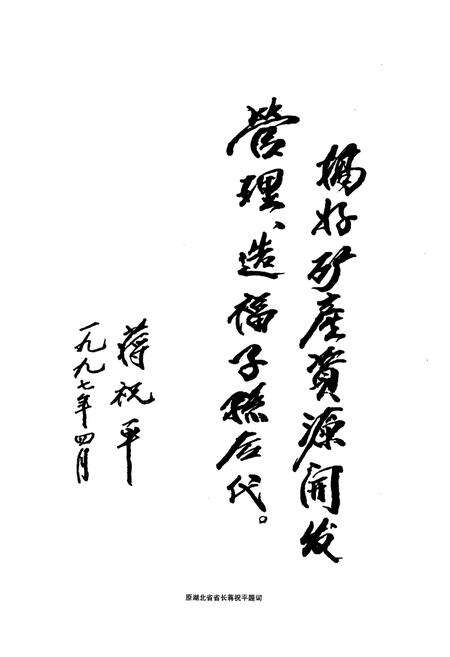 搞好矿產資源開发
管理、造福子孫后代。
蒋祝平
一九九七年四月
原湖北省省长蒋祝平题词